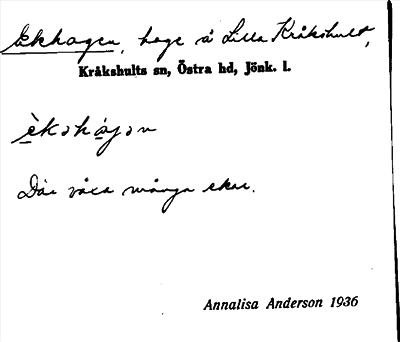 Ekhagen, hage å Lilla Kråkshult,
Kråkshults sn, Östra hd, Jönk. l.
èkəhàgən
Där växa många ekar.
Annalisa Anderson 1936